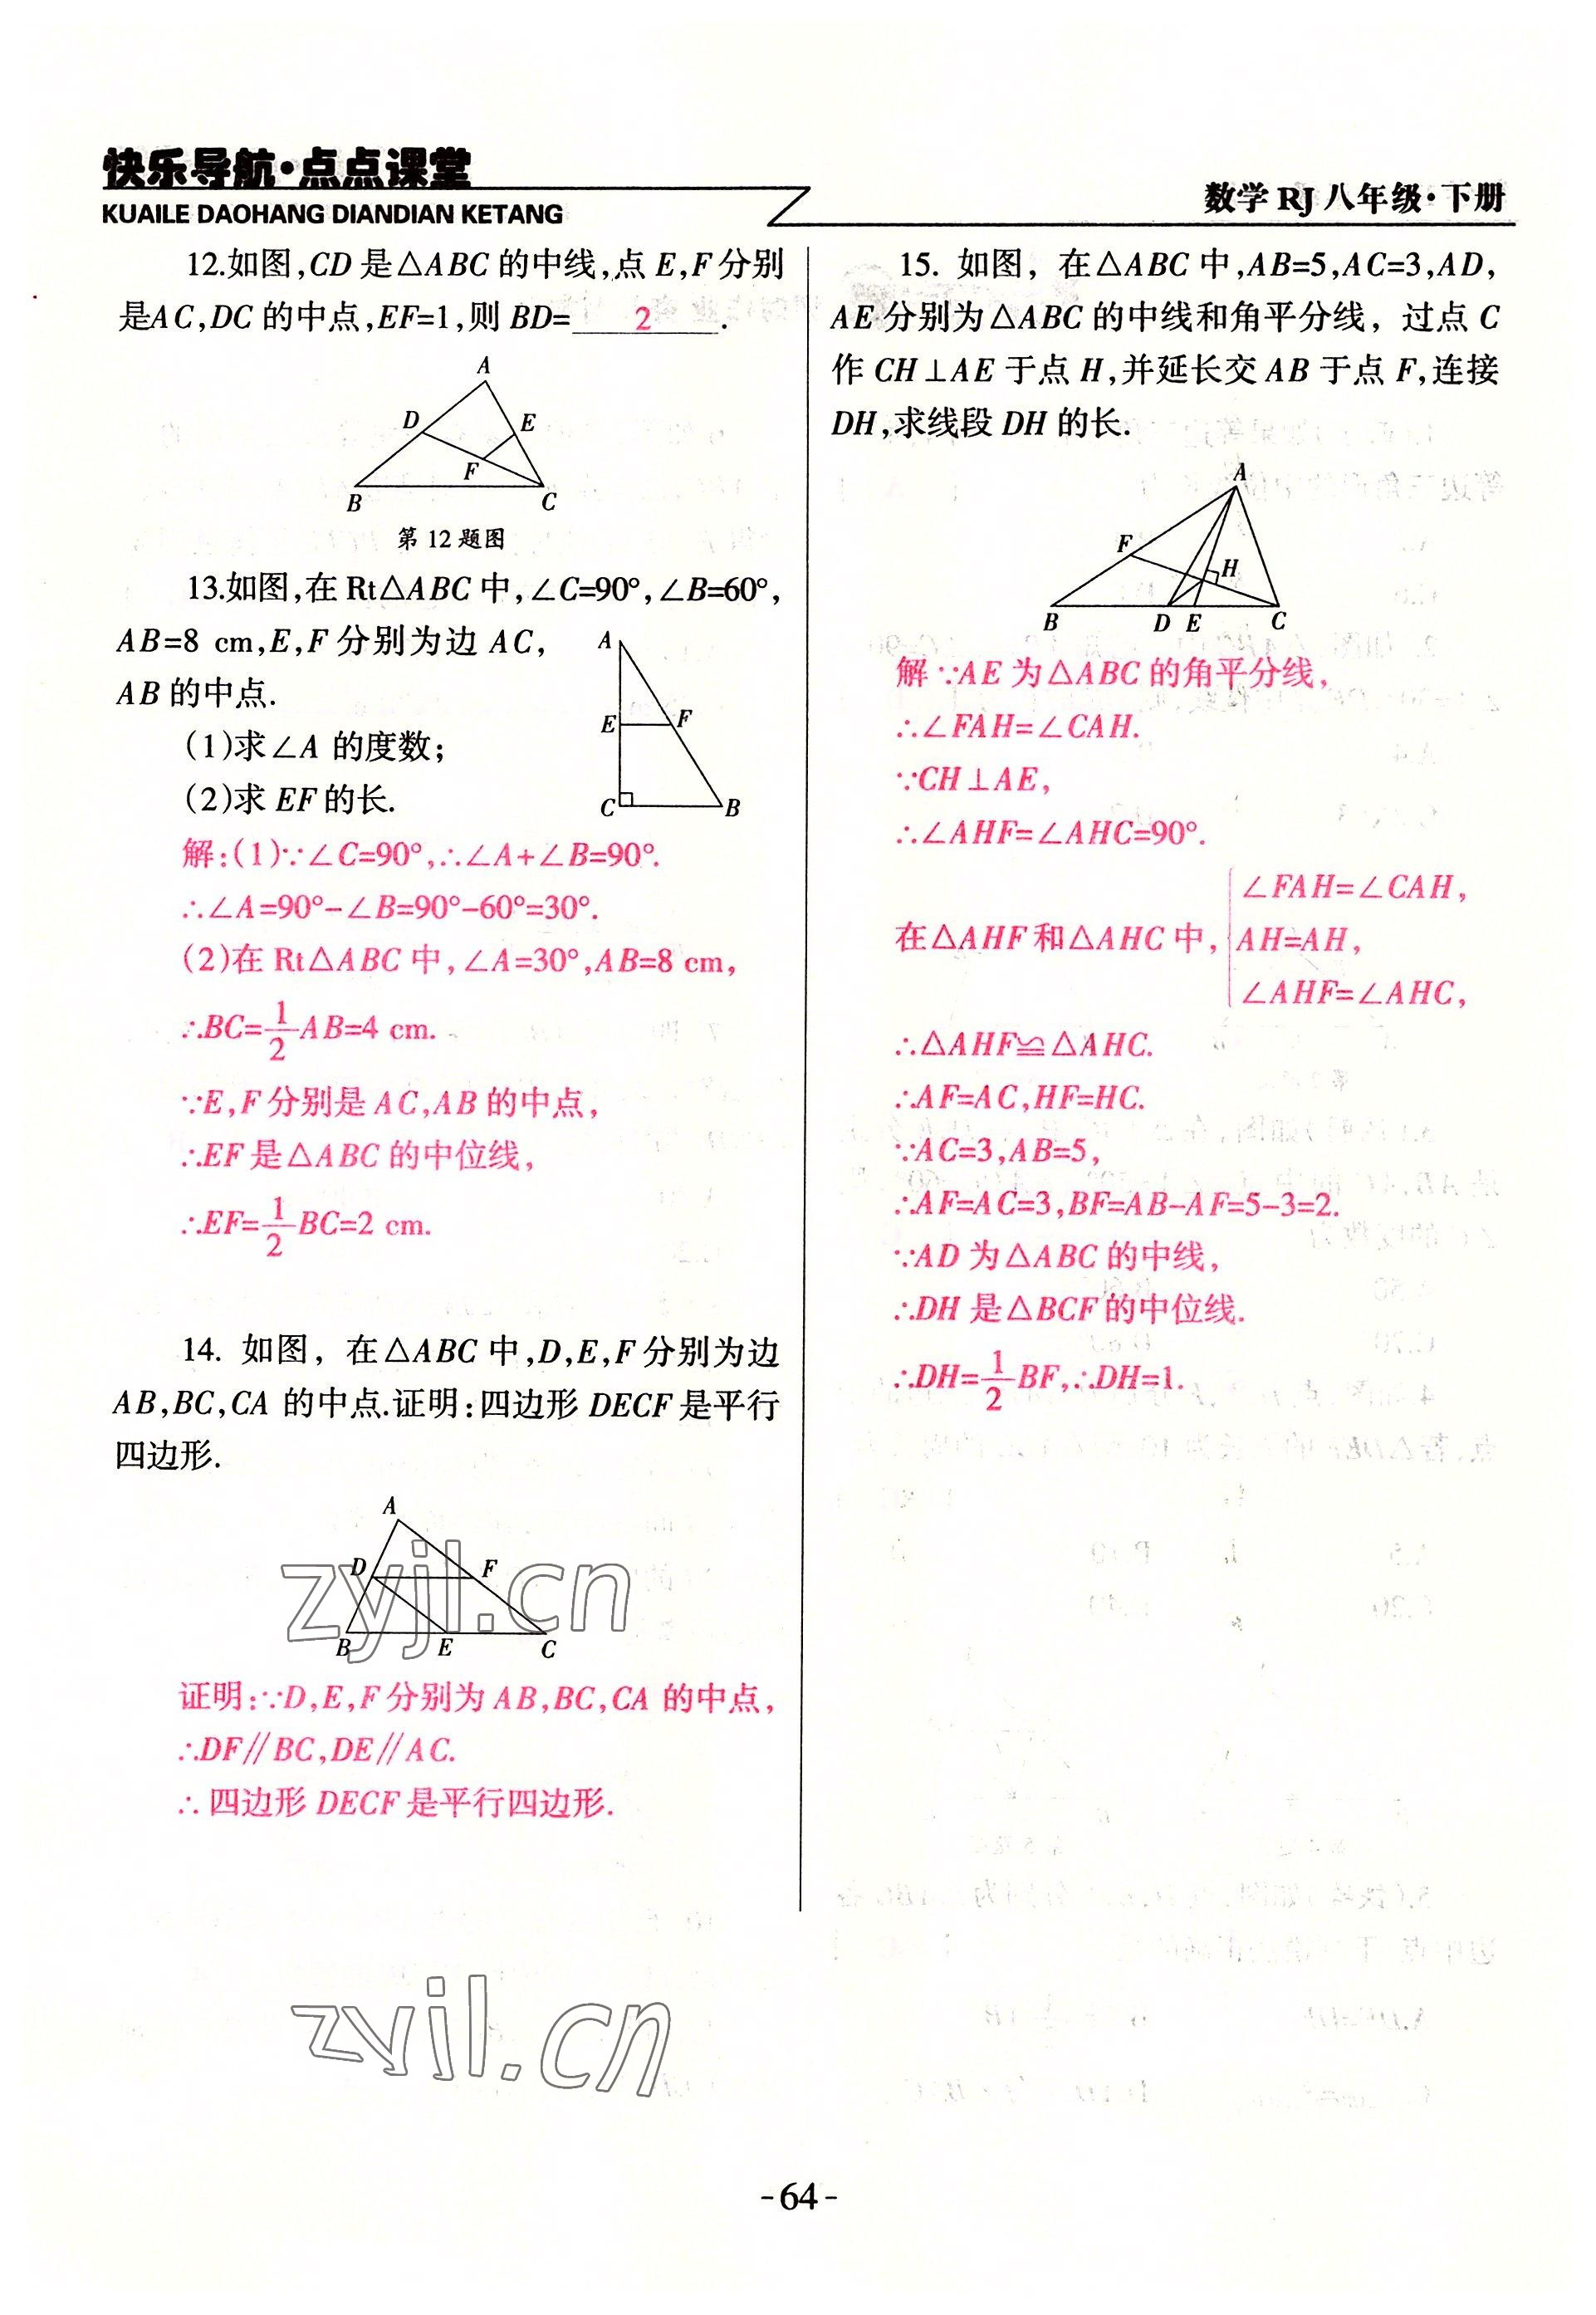 快乐导航·点点课堂
KUAILE DAOHANG DIANDIAN KETANG
数学 RJ 八年级·下册
12.如图,CD 是△ABC 的中线,点 E,F 分别
是AC,DC 的中点,EF=1,则 BD= 2 .
A
D
E
F
B
C
第 12 题图
13.如图,在 Rt△ABC 中,∠C=90°,∠B=60°,
AB=8 cm,E,F 分别为边 AC,
AB 的中点.
(1)求∠A 的度数;
(2)求 EF 的长.
A
E
F
C
B
解:(1)∵∠C=90°,∴∠A+∠B=90°.
∴∠A=90°-∠B=90°-60°=30°.
(2)在 Rt△ABC 中,∠A=30°,AB=8 cm,
∴BC=1/2AB=4 cm.
∵E,F 分别是 AC,AB 的中点,
∴EF 是△ABC 的中位线,
∴EF=1/2BC=2 cm.
14. 如图，在△ABC 中,D,E,F 分别为边
AB,BC,CA 的中点.证明:四边形 DECF 是平行
四边形.
A
D
F
B
E
C
zyjl.cn
证明:∵D,E,F 分别为 AB,BC,CA 的中点,
∴DF∥BC,DE∥AC.
∴四边形 DECF 是平行四边形.
15. 如图，在△ABC 中,AB=5,AC=3,AD,
AE 分别为△ABC 的中线和角平分线，过点 C
作 CH⊥AE 于点 H,并延长交 AB 于点 F,连接
DH,求线段 DH 的长.
A
F
H
B
D E
C
解 ∵AE 为△ABC 的角平分线,
∴∠FAH=∠CAH.
∵CH⊥AE,
∴∠AHF=∠AHC=90°.
∠FAH=∠CAH,
在△AHF 和△AHC 中, AH=AH,
∠AHF=∠AHC,
∴△AHF≌△AHC.
∴AF=AC,HF=HC.
∵AC=3,AB=5,
∴AF=AC=3,BF=AB-AF=5-3=2.
∵AD 为△ABC 的中线,
∴DH 是△BCF 的中位线.
∴DH=1/2BF,∴DH=1.
zyjl.cn
-64-